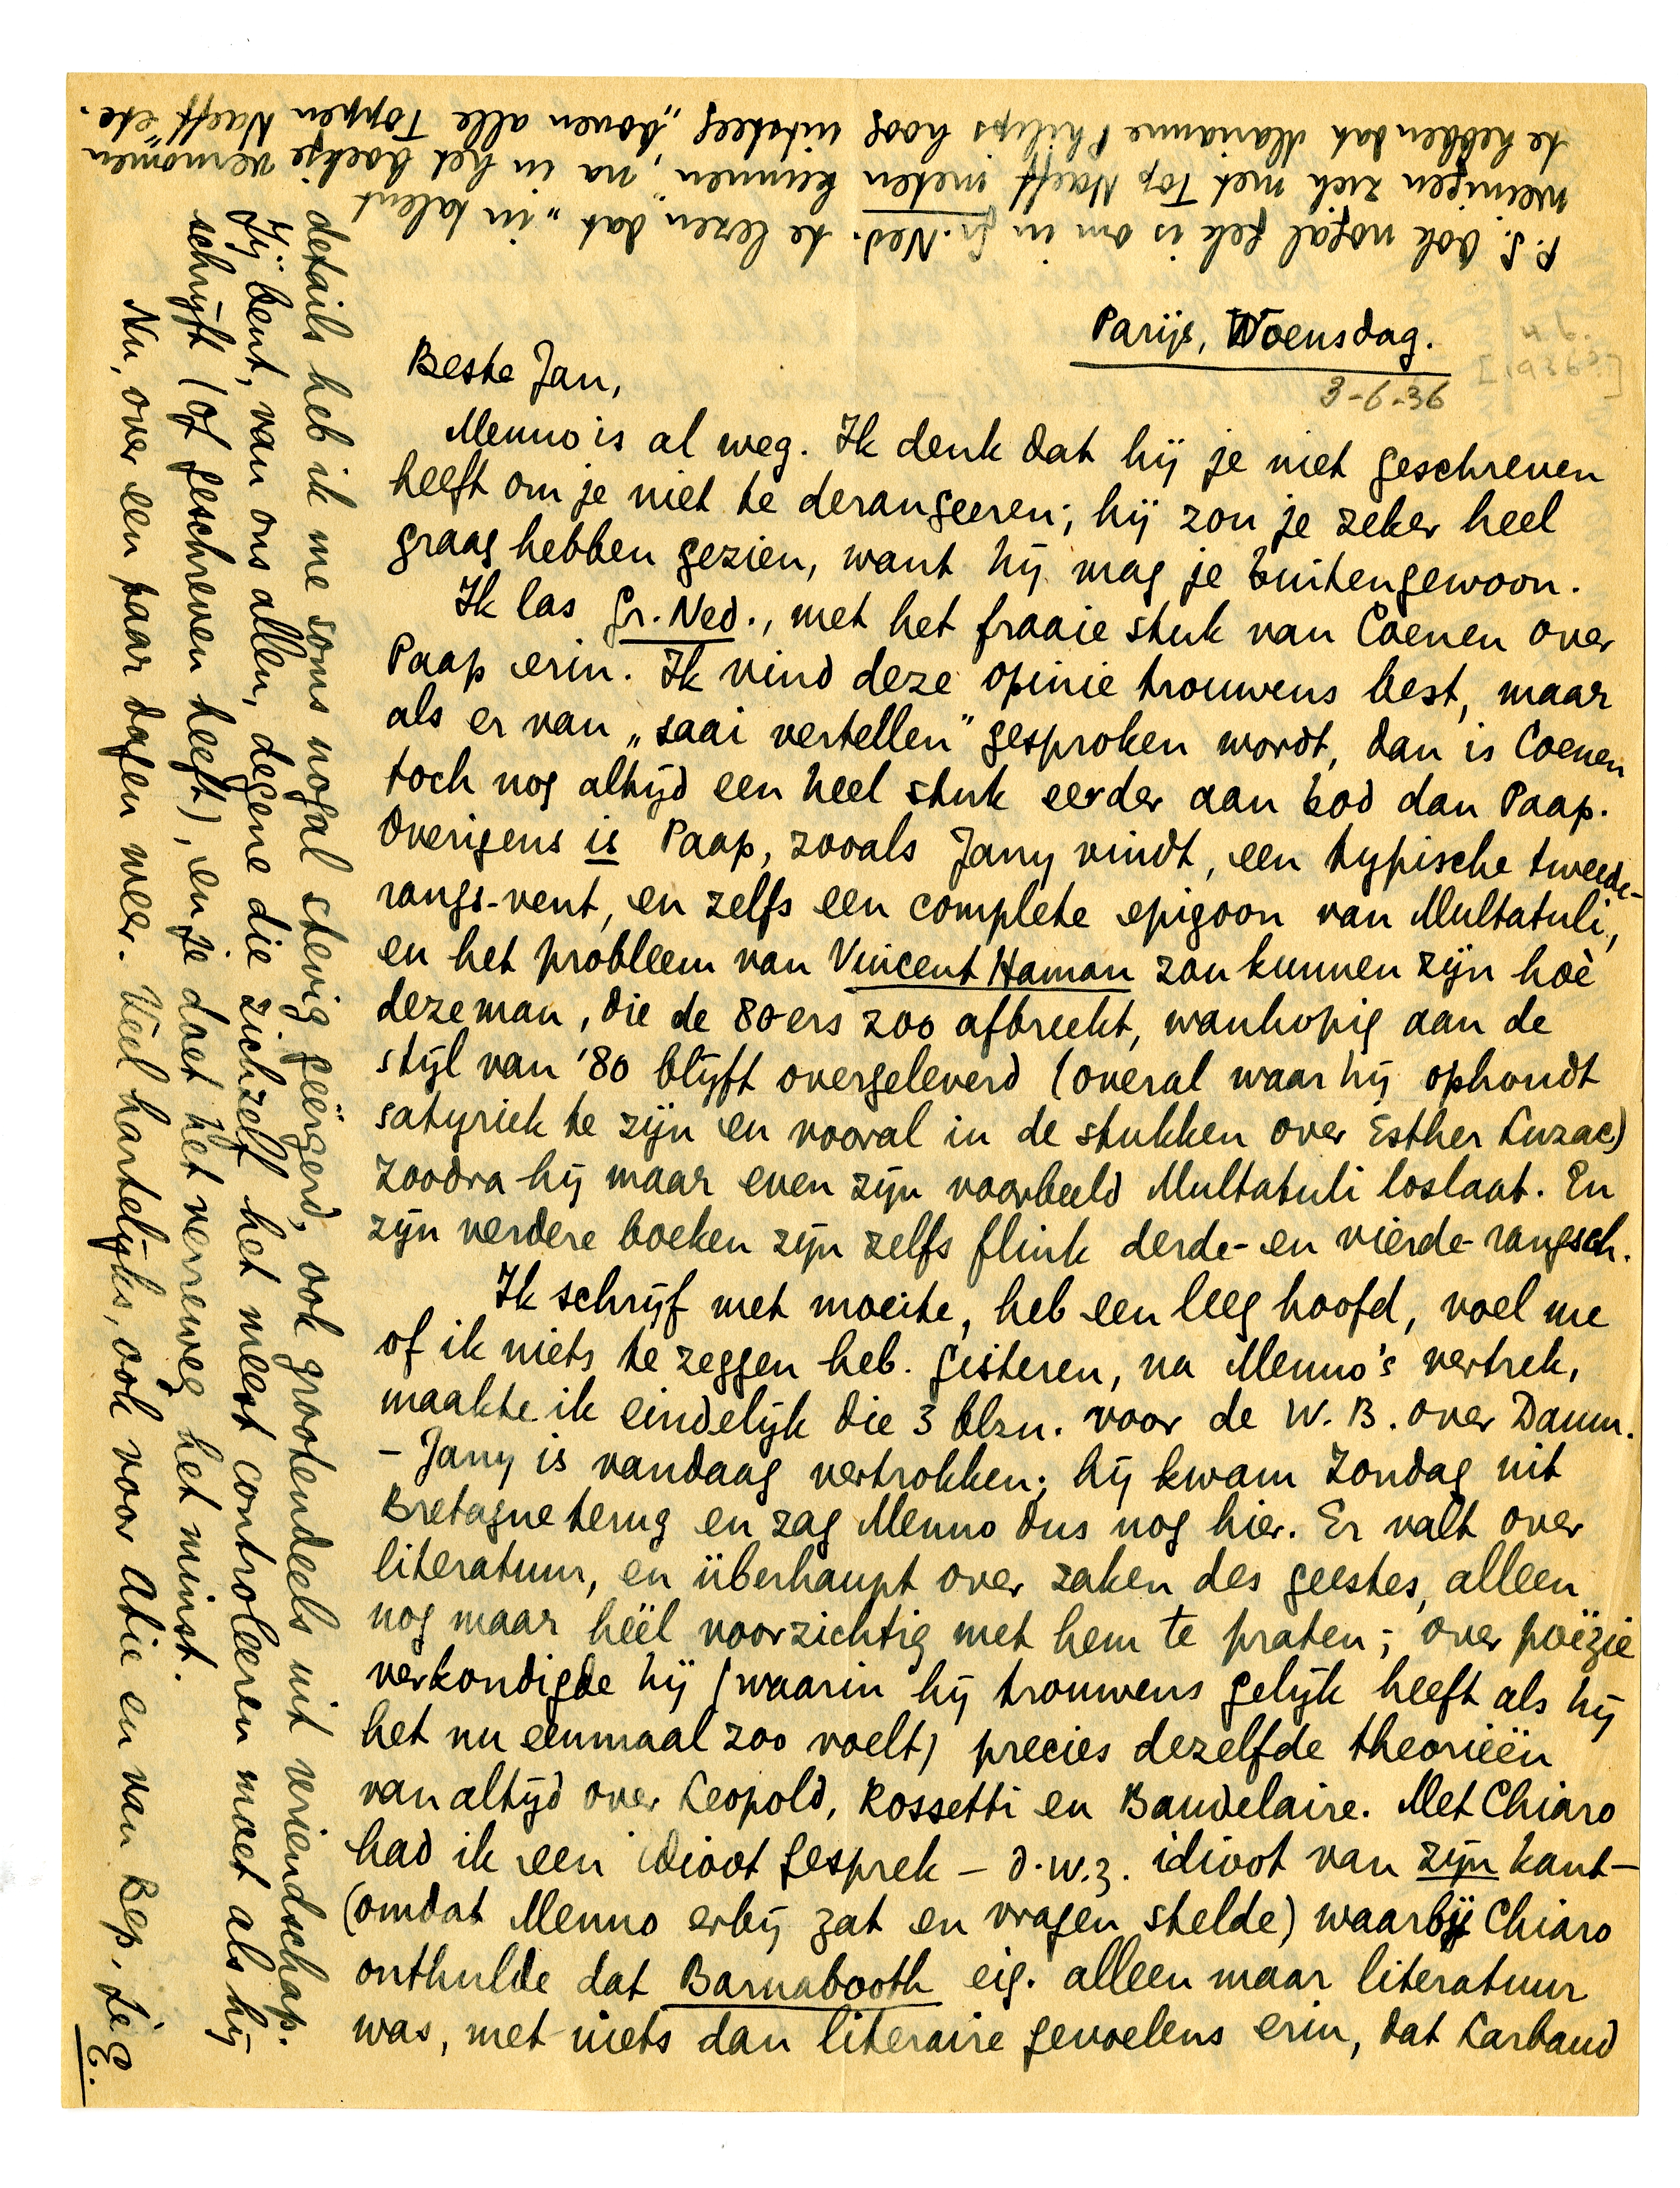 Parijs, Woensdag.
3-6-36
Beste Jan,
Menno is al weg. Ik denk dat hij je niet geschreven
heeft om je niet te derangeeren; hij zou je zeker heel
graag hebben gezien, want hij mag je buitengewoon.
Ik las Gr. Ned., met het fraaie stuk van Coenen over
Paap erin. Ik vind deze opinie trouwens best, maar
als er van „saai vertellen” gesproken wordt, dan is Coenen
toch nog altijd een heel stuk eerder aan bod dan Paap.
Overigens is Paap, zooals Jany vindt, een typische tweede-
rangs-vent, en zelfs een complete epigoon van Multatuli,
en het probleem van Vincent Haman zou kunnen zijn hoè
deze man, die de 80ers zoo afbreekt, wanhopig aan de
stijl van '80 blijft overgeleverd (overal waar hij ophoudt
satyriek te zijn en vooral in de stukken over Esther Luzac)
zoodra hij maar even zijn voorbeeld Multatuli loslaat. En
zijn verdere boeken zijn zelfs flink derde- en vierde-rangsch.
Ik schrijf met moeite, heb een leeg hoofd, voel me
of ik niets te zeggen heb. Gisteren, na Menno's vertrek,
maakte ik eindelijk die 3 blzn. voor de W.B. over Daum.
– Jany is vandaag vertrokken; hij kwam Zondag uit
Bretagne terug en zag Menno dus nog hier. Er valt over
literatuur, en überhaupt over zaken des geestes, alleen
nog maar héél voorzichtig met hem te praten; over poëzie
verkondigde hij (waarin hij trouwens gelijk heeft als hij
het nu eenmaal zoo voelt) precies dezelfde theorieën
van altijd over Leopold, Rossetti en Baudelaire. Met Chiaro
had ik een idioot gesprek – d.w.z. idioot van zijn kant –
(omdat Menno erbij zat en vragen stelde) waarbij Chiaro
onthulde dat Barnabooth eig. alleen maar literatuur
was, met niets dan literaire gevoelens erin, dat Larbaud
details heb ik me soms nogal stevig geërgerd, ook grootendeels uit vriendschap.
Jij bent, van ons allen, degene die zichzelf het meest controleeren moet als hij
schrijft (of geschreven heeft), en je doet het verreweg het minst.
Nu, over een paar dagen weer. Veel hartelijks, ook voor Atie en van Bep, je
E.
P.S. Ook nogal gek is om in Gr. Ned. te lezen dat „in talent
weinigen zich met Top Naeff meten kunnen”, na in het boekje vernomen
te hebben dat Marianne Philips hoog uitsteeg „boven alle Toppen Naeff” etc.